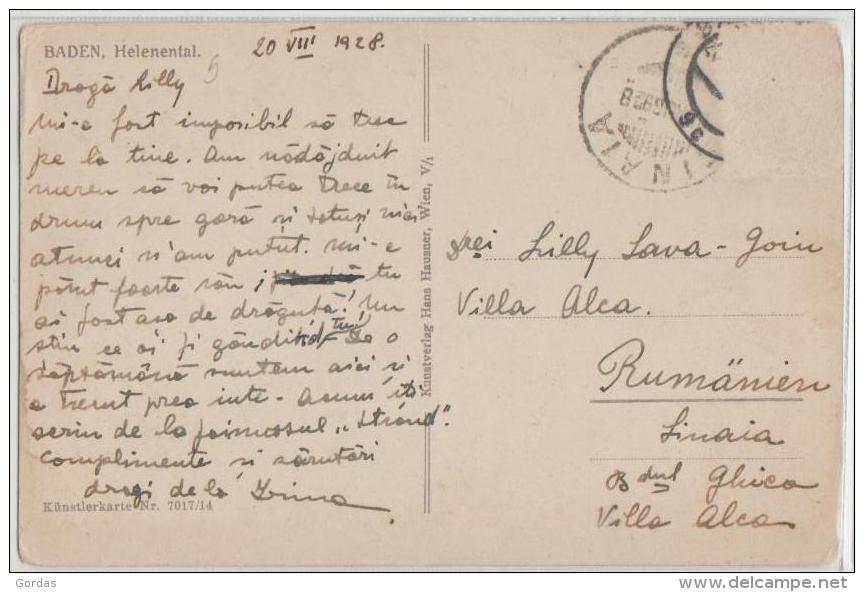 BADEN, Helenental.
20 VIII 1928.
Dragă Lilly
Mi-a fost imposibil să trec
pe la tine. Am nădăjduit
mereu că voi putea trece în
drum spre gară și totuși nici
atunci n'am putut. Mi-e
părut foarte rău, tu
ai fost așa de drăguță! Nu
știu ce ăi fi gândit tu! De o
săptămână suntem aici și
a trecut prea iute. Acum îți
scriu de la faimosul „Strand".
Complimente și sărutări
dragi de la Irina
Künstlerkarte Nr. 7017/14
Kunstverlag Hans Hausner, Wien, V/1
SINAIA
Lilly Sava-Goiu
Villa Alca.
Rumänien
Sinaia
Bdul Ghica
Villa Alca
Gordas
delcampe.net